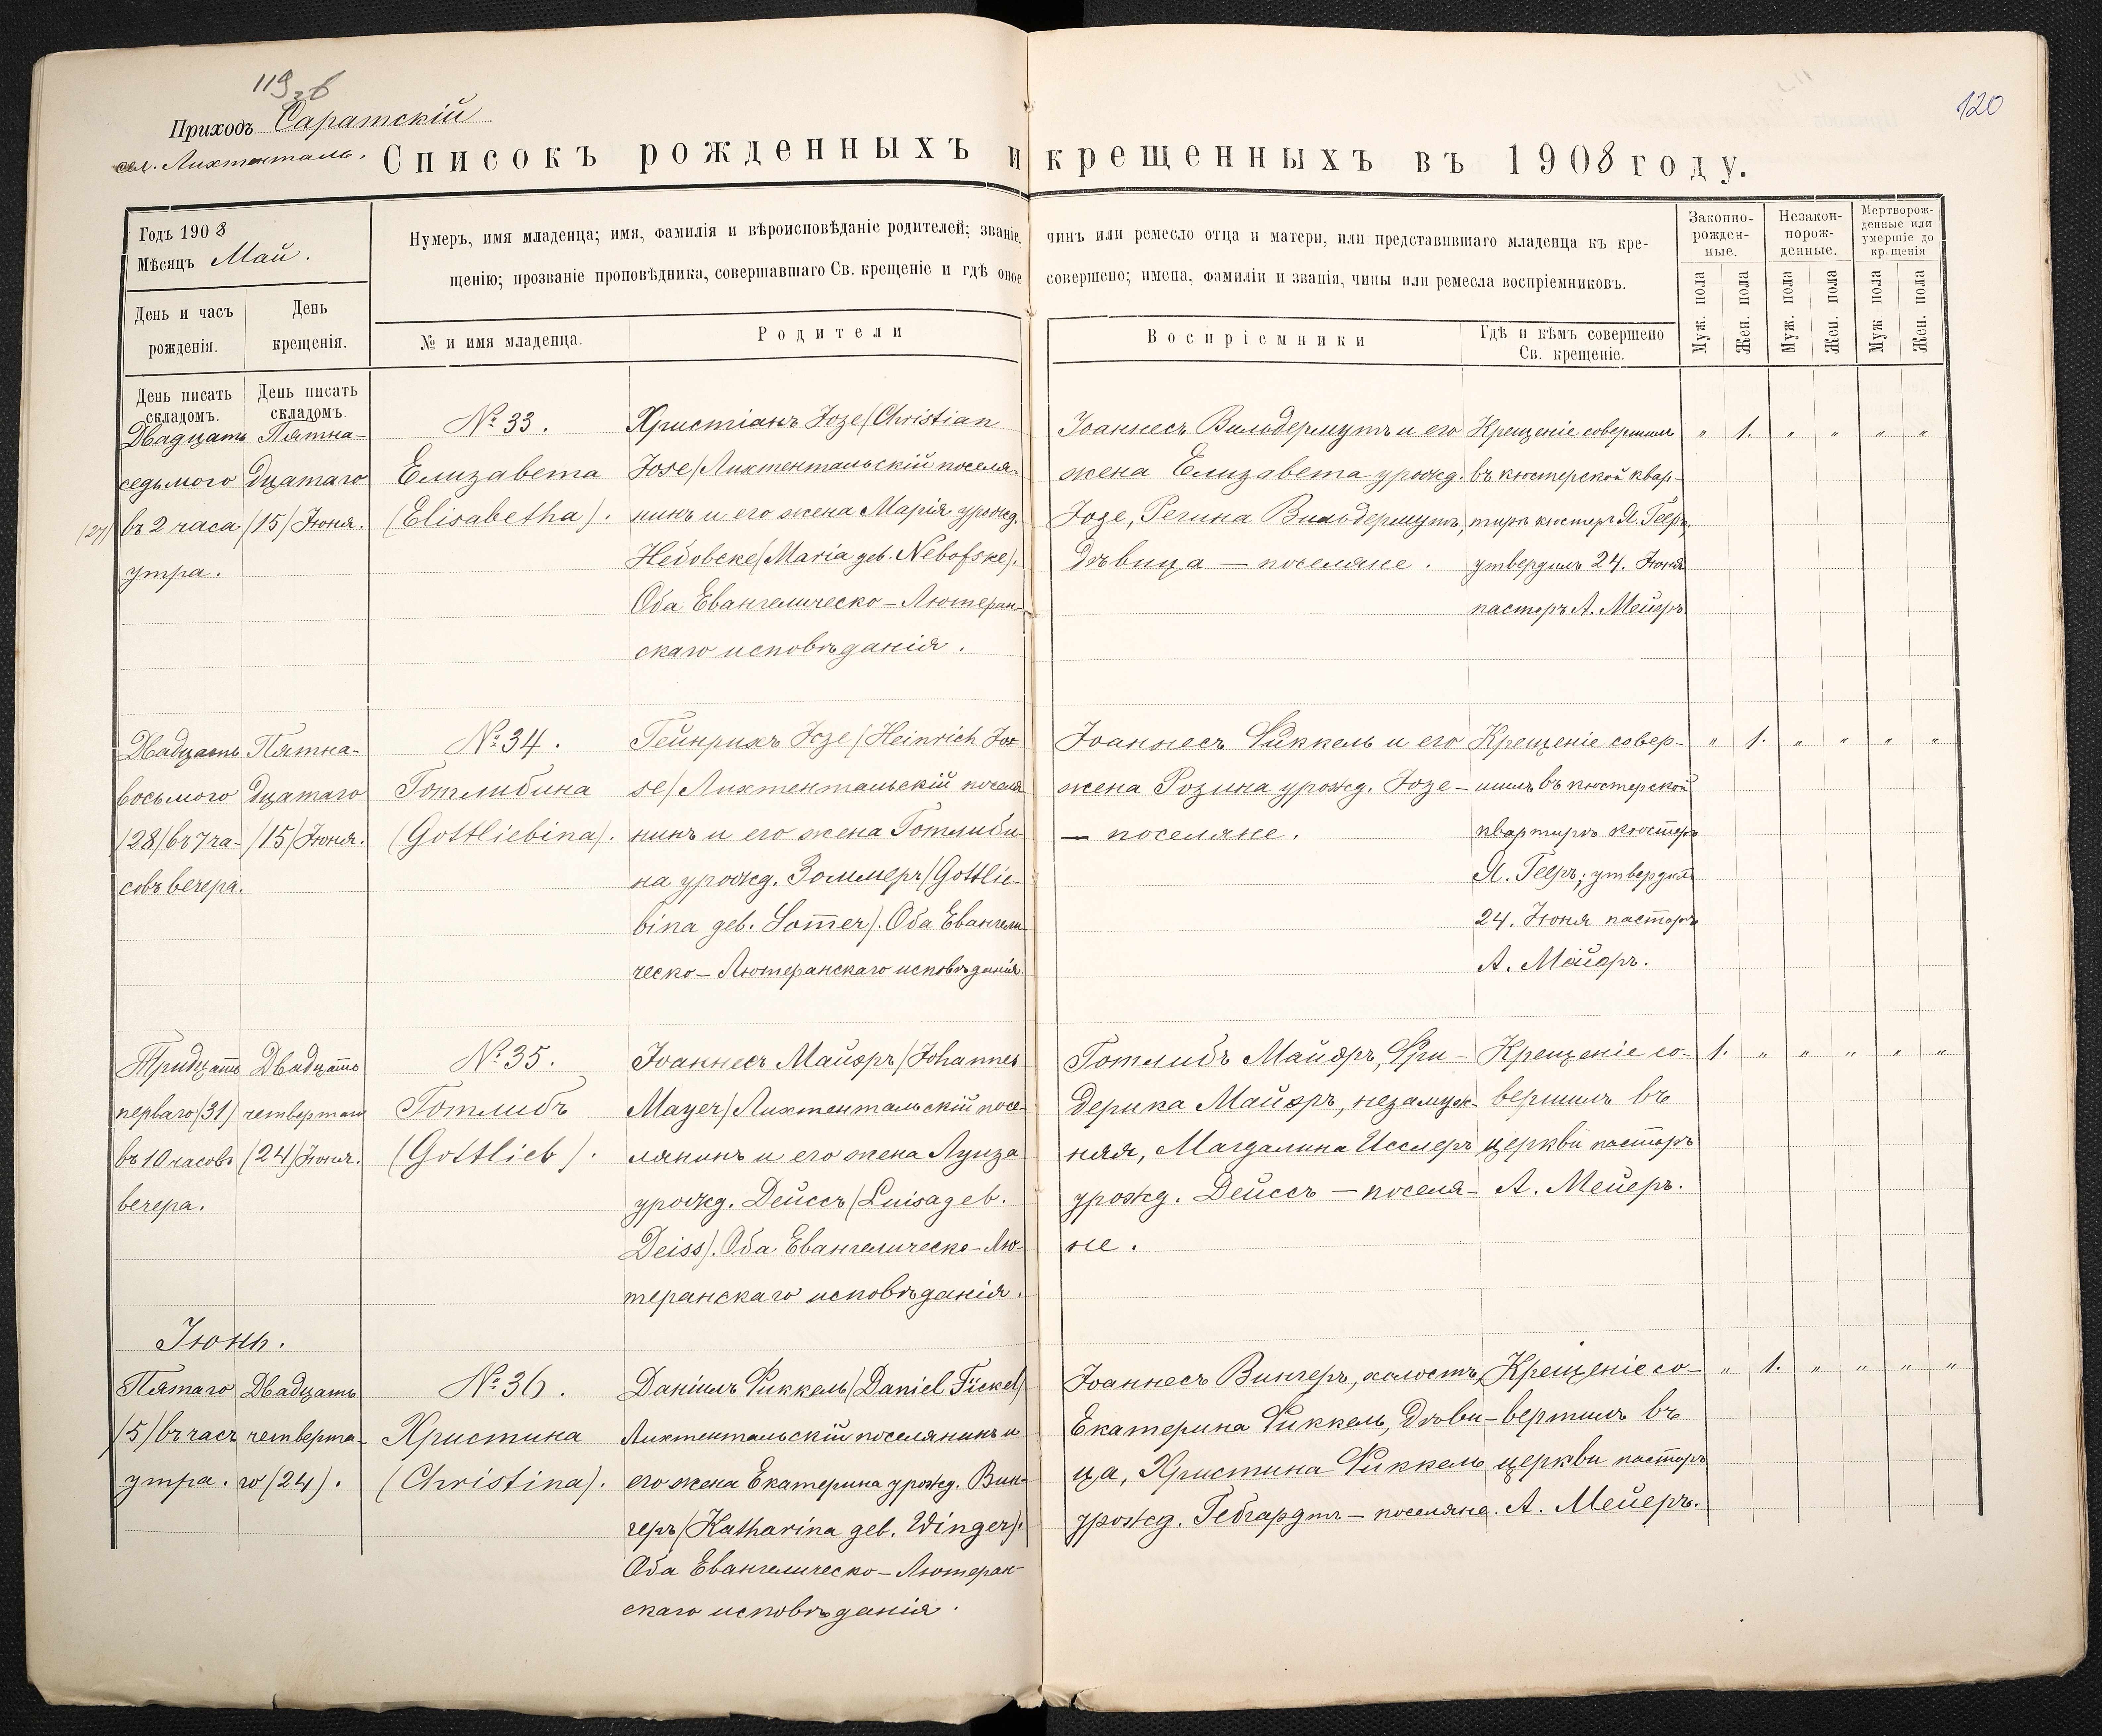 119 об
120
Приходъ Саратскій
сел. Лихтенталь.
Списокъ рожденныхъ и крещенныхъ въ 1908 году.
Годъ 1908
Мѣсяцъ Май.
Нумеръ, имя младенца; имя, фамилія и вѣроисповѣданіе родителей; званіе, чинъ или ремесло отца и матери, или представившаго младенца къ кре-
щенію; прозваніе проповѣдника, совершавшаго Св. крещеніе и гдѣ оное совершено; имена, фамиліи и званія, чины или ремесла воспріемниковъ.
День и часъ
рожденія.
День
крещенія.
№ и имя младенца.
Родители
Воспріемники
Гдѣ и кѣмъ совершено
Св. крещеніе.
Законно-
рожден-
ные.
Незакон-
норож-
денные.
Мертворож-
денные или
умершіе до
крещенія
Муж. пола
Жен. пола
Муж. пола
Жен. пола
Муж. пола
Жен. пола
День писать
складомъ.
День писать
складомъ.
Двадцать
седьмого
(27) въ 2 часа
утра.
Пятна-
дцатаго
(15) Іюня.
№ 33.
Елизавета
(Elisabetha).
Христіанъ Іозе (Christian
Jose) Лихтентальскій поселя-
нинъ и его жена Марія урожд.
Небовске (Maria geb. Nebofske).
Оба Евангелическо-Лютеран-
скаго исповѣданія.
Іоаннесъ Вильдермутъ и его
жена Елизавета урожд.
Іозе, Регина Вильдермутъ,
дѣвица — поселяне.
Крещеніе совершилъ
въ кюстерской квар-
тирѣ кюстеръ Я. Гееръ,
утвердилъ 24. Іюня
пасторъ А. Мейеръ
" 1. " " " "
Двадцать
восьмого
(28) въ 7 ча-
совъ вечера.
Пятна-
дцатаго
(15) Іюня.
№ 34.
Готлибина
(Gottliebina).
Гейнрихъ Іозе (Heinrich Jo
se) Лихтентальскій поселя
нинъ и его жена Готлиби-
на урожд. Зоммеръ (Gottlie-
bina geb. Som̅er). Оба Евангели
ческо-Лютеранскаго исповѣданія
Іоаннесъ Фиккель и его
жена Розина урожд. Іозе —
— поселяне.
Крещеніе совер-
шилъ въ кюстерской
квартирѣ кюстеръ
Я. Гееръ; утвердилъ
24. Іюня пасторъ
А. Мейеръ.
" 1. " " " "
Тридцать
перваго (31)
въ 10 часовъ
вечера.
Двадцать
четвертаго
(24) Іюня.
№ 35.
Готлибъ
(Gottlieb).
Іоаннесъ Майеръ (Johannes
Mayer) Лихтентальскій посе-
лянинъ и его жена Луиза
урожд. Дейссъ (Luisa geb.
Deiss). Оба Евангелическо-Лю-
теранскаго исповѣданія.
Готлибъ Майеръ, Фри-
дерика Майеръ, незамуж-
няя, Магдалина Исслеръ
урожд. Дейссъ — поселя-
не.
Крещеніе со-
вершилъ въ
церкви пасторъ
А. Мейеръ.
1. " " " " "
Іюнь.
Пятаго
(5) въ часъ
утра.
Двадцать
четверта-
го (24).
№ 36.
Христина
(Christina).
Даніилъ Фиккель (Daniel Fickel)
Лихтентальскій поселянинъ и
его жена Екатерина урожд. Вин-
геръ (Katharina geb. Winger).
Оба Евангелическо-Лютеран-
скаго исповѣданія.
Іоаннесъ Вингеръ, холостъ,
Екатерина Фиккель, дѣви-
ца, Христина Фиккель
урожд. Гебгардтъ — поселяне.
Крещеніе со-
вершилъ въ
церкви пасторъ
А. Мейеръ.
" 1. " " " "